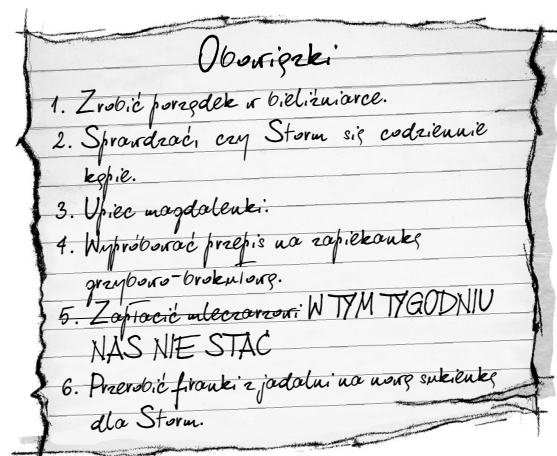 Obowiązki
1. Zrobić porządek w bieliźniarce.
2. Sprawdzać, czy Storm się codziennie
kąpie.
3. Upiec magdalenki.
4. Wypróbować przepis na zapiekankę
grzybowo-brokułową.
5. Zapłacić mleczarzowi W TYM TYGODNIU
NAS NIE STAĆ
6. Przerobić firanki z jadalni na nową sukienkę
dla Storm.